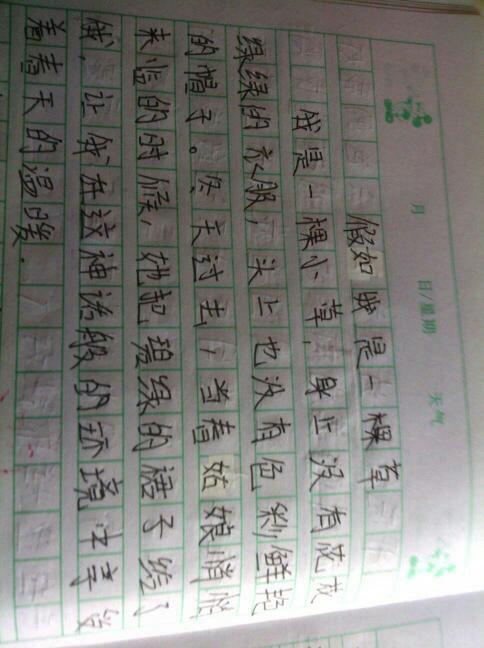 月 日/星期 天气
假如我是一棵草
我是一棵小草,身上没有花花
绿绿的衣服,头上也没有色彩鲜艳
的帽子。冬天过去,当春姑娘悄悄
来临的时候,她把碧绿的裙子给了
我,让我在这神话般的环境中享受
着春天的温暖.